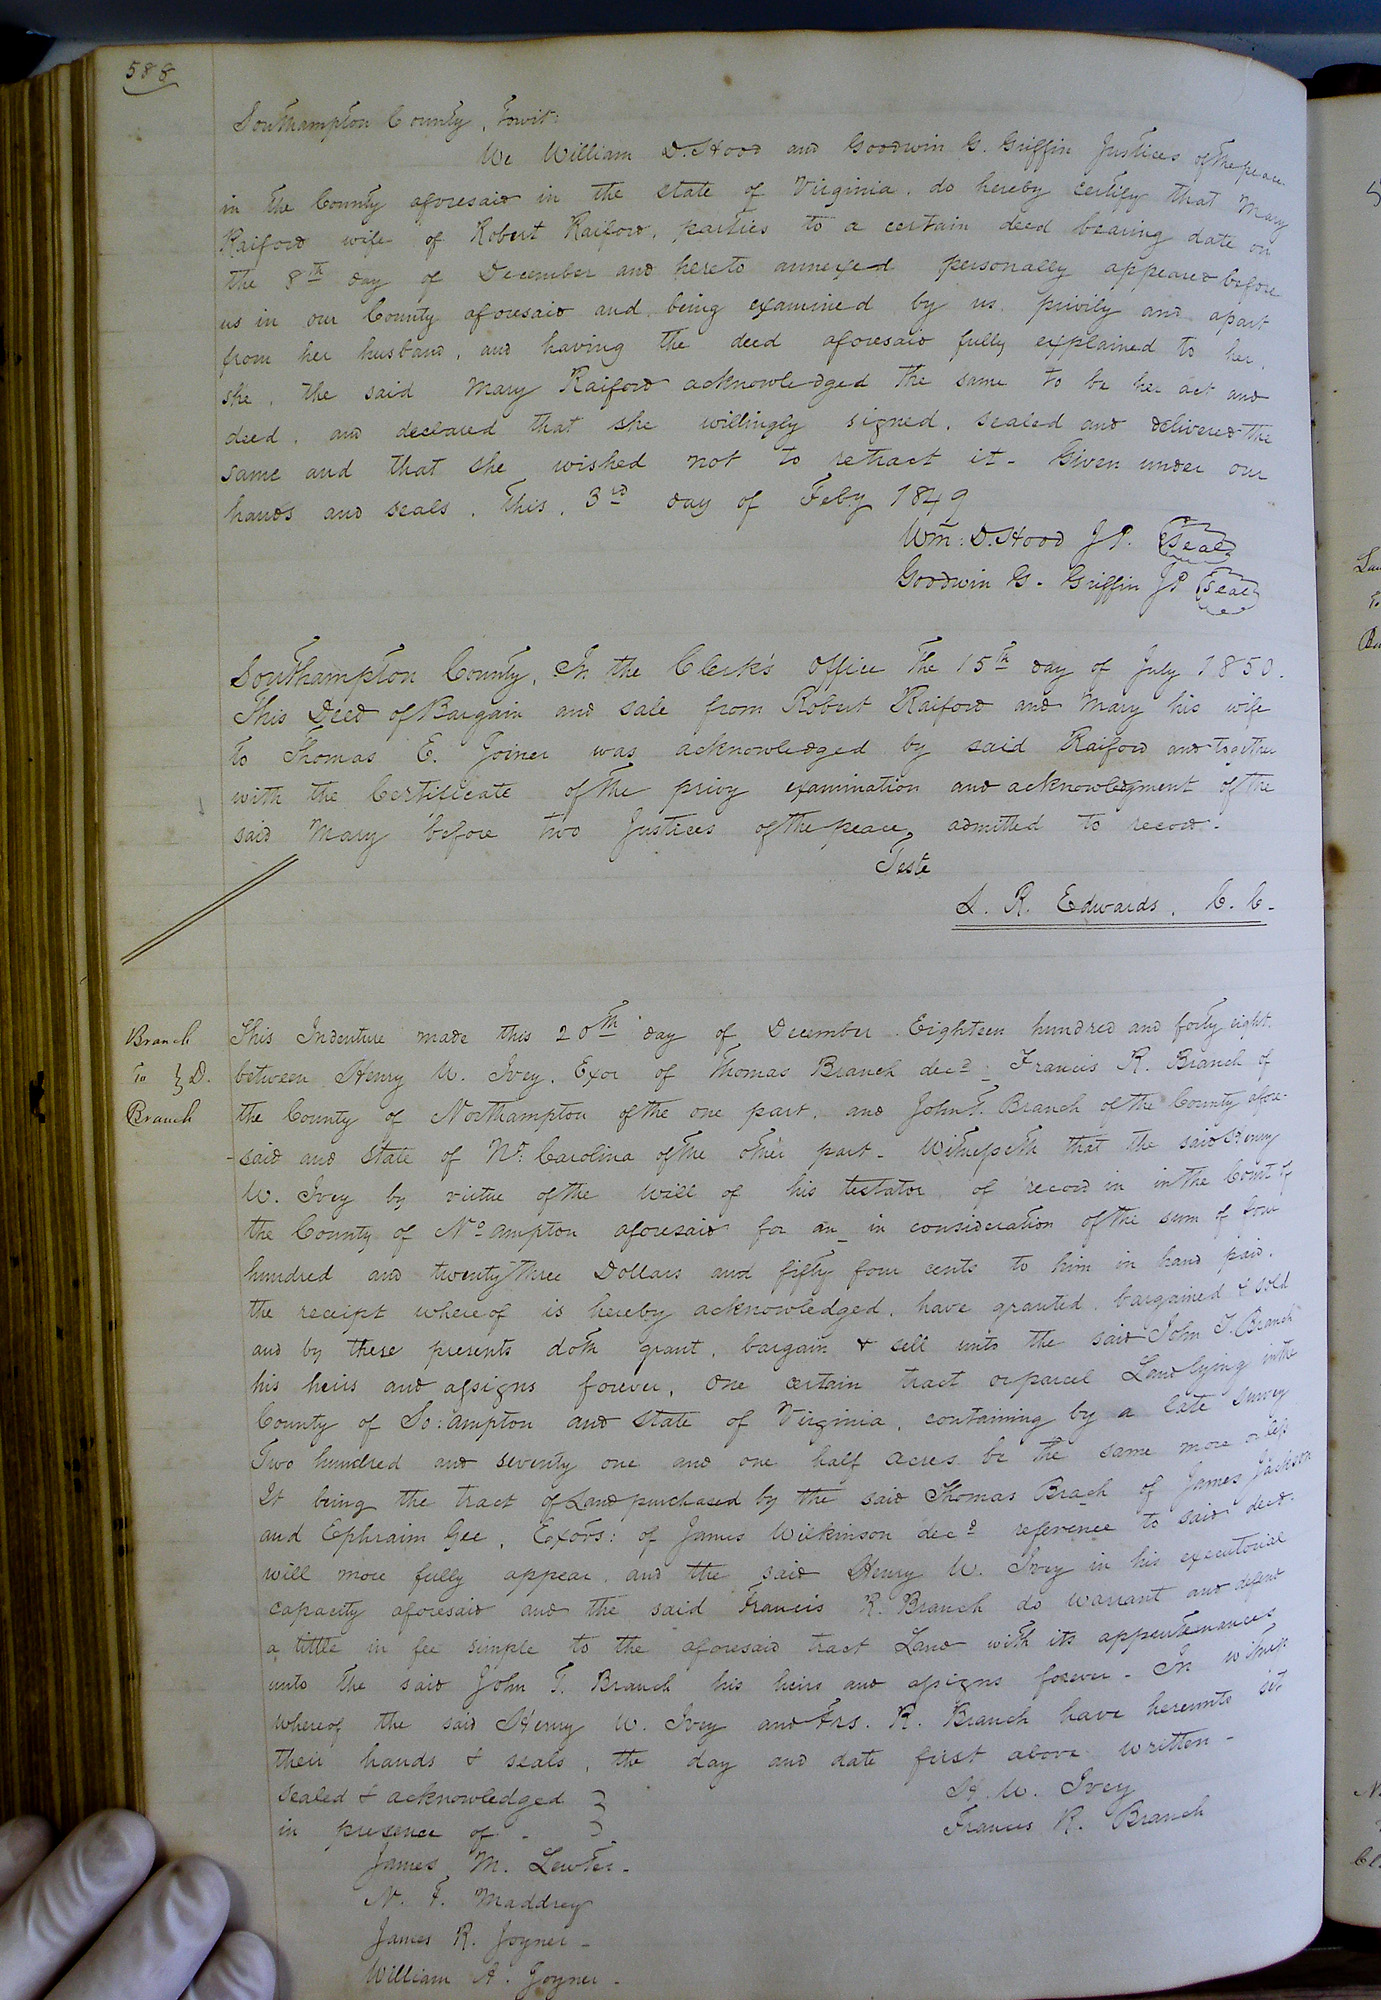 588
Southampton County, Towit:
We William D. Hood and Goodwin G. Griffin Justices of the peace
in the County aforesaid in the state of Virginia, do hereby certify that Mary
Raiford wife of Robert Raiford, parties to a certain deed bearing date on
the 8th day of December and hereto annexed personally appeared before
us in our County aforesaid and being examined by us privily and apart
from her husband, and having the deed aforesaid fully explained to her,
she, the said Mary Raiford acknowledged the same to be her act and
deed, and declared that she willingly signed, sealed and delivered the
same and that she wished not to retract it - Given under our
hands and seals, this, 3rd day of Feby 1849
Wm: D. Hood JP. Seal
Goodwin G. Griffin JP Seal
Southampton County, In the Clerk's Office the 15th day of July 1850.
This Deed of Bargain and sale from Robert Raiford and Mary his wife
to Thomas E. Joiner was acknowledged by said Raiford and together
with the Certificate of the privy examination and acknowledgment of the
said Mary before two Justices of the peace, admitted to record.
Teste
L. R. Edwards, C. C.
Branch
To } D.
Branch
This Indenture made this 20th day of December Eighteen hundred and forty eight.
between Henry W. Ivey, Exor of Thomas Branch decd: Francis R. Branch of
the County of Northampton of the one part, and John T. Branch of the County afore-
-said and state of No. Carolina of the other part - Witnesseth that the said Henry
W. Ivey by virtue of the will of his testator, of record in in the Court of
the County of No ampton aforesaid for an_ in consideration of the sum of four
hundred and twenty three Dollars and fifty four cents to him in hand paid.
the receipt whereof is hereby acknowledged, have granted, bargained & sold
and by these presents doth grant, bargain, & sell unto the said John T. Branch
his heirs and assigns forever, One certain tract or parcel Land lying in the
County of So:ampton and state of Virginia, containing by a late survey
Two hundred and seventy one and one half acres be the same more or less
It being the tract of Land purchased by the said Thomas Brach of James Jackson
and Ephraim Gee, Exors: of James Wilkinson decd reference to said deed.
will more fully appear, and the said Henry W. Ivey in his executorial
capacity aforesaid and the said Francis R. Branch do warrant and defend
a tittle in fee simple to the aforesaid tract Land with its appurtenances
unto the said John T. Branch his heirs and assigns forever - In witness
whereof the said Henry W. Ivey and Frs. R. Branch have hereunto set
their hands & seals, the day and date first above written -
Sealed & acknowledged }
in presence of -
H. W. Ivey
Francis R. Branch
James M. Lewter -
N. F. Maddrey
James R. Joyner -
William A. Joyner -